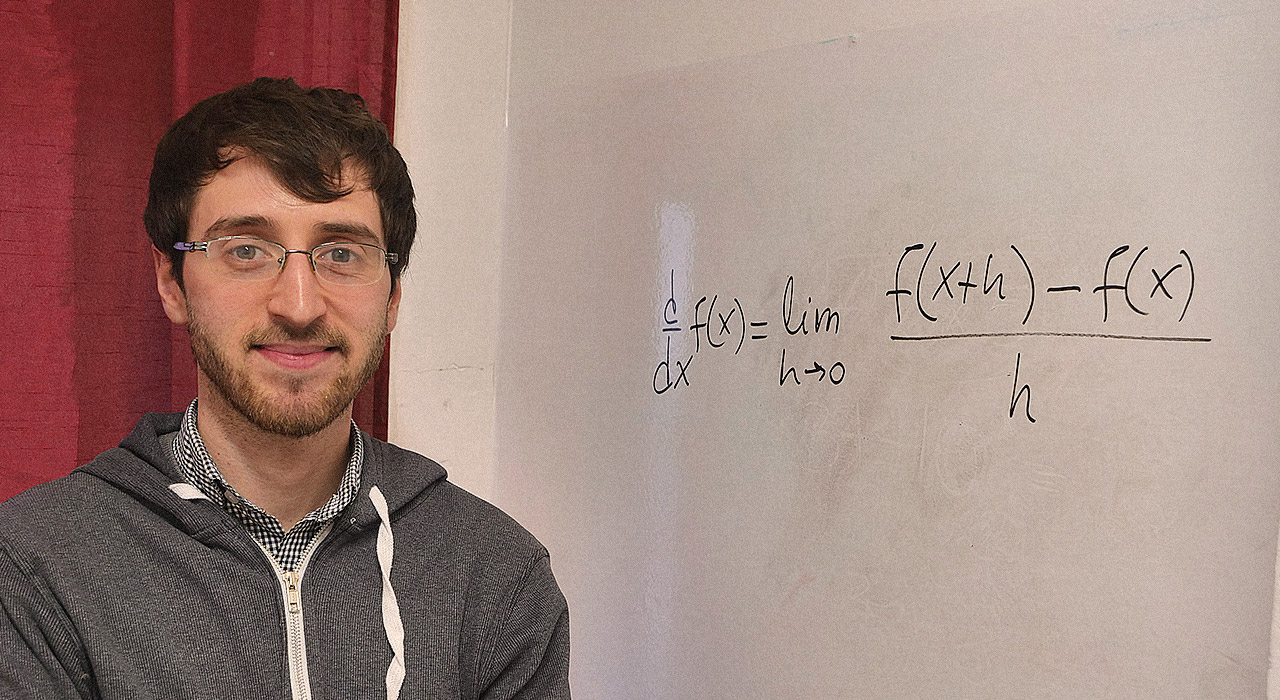 d/dx f(x) = lim h→0 f(x+h) − f(x) / h